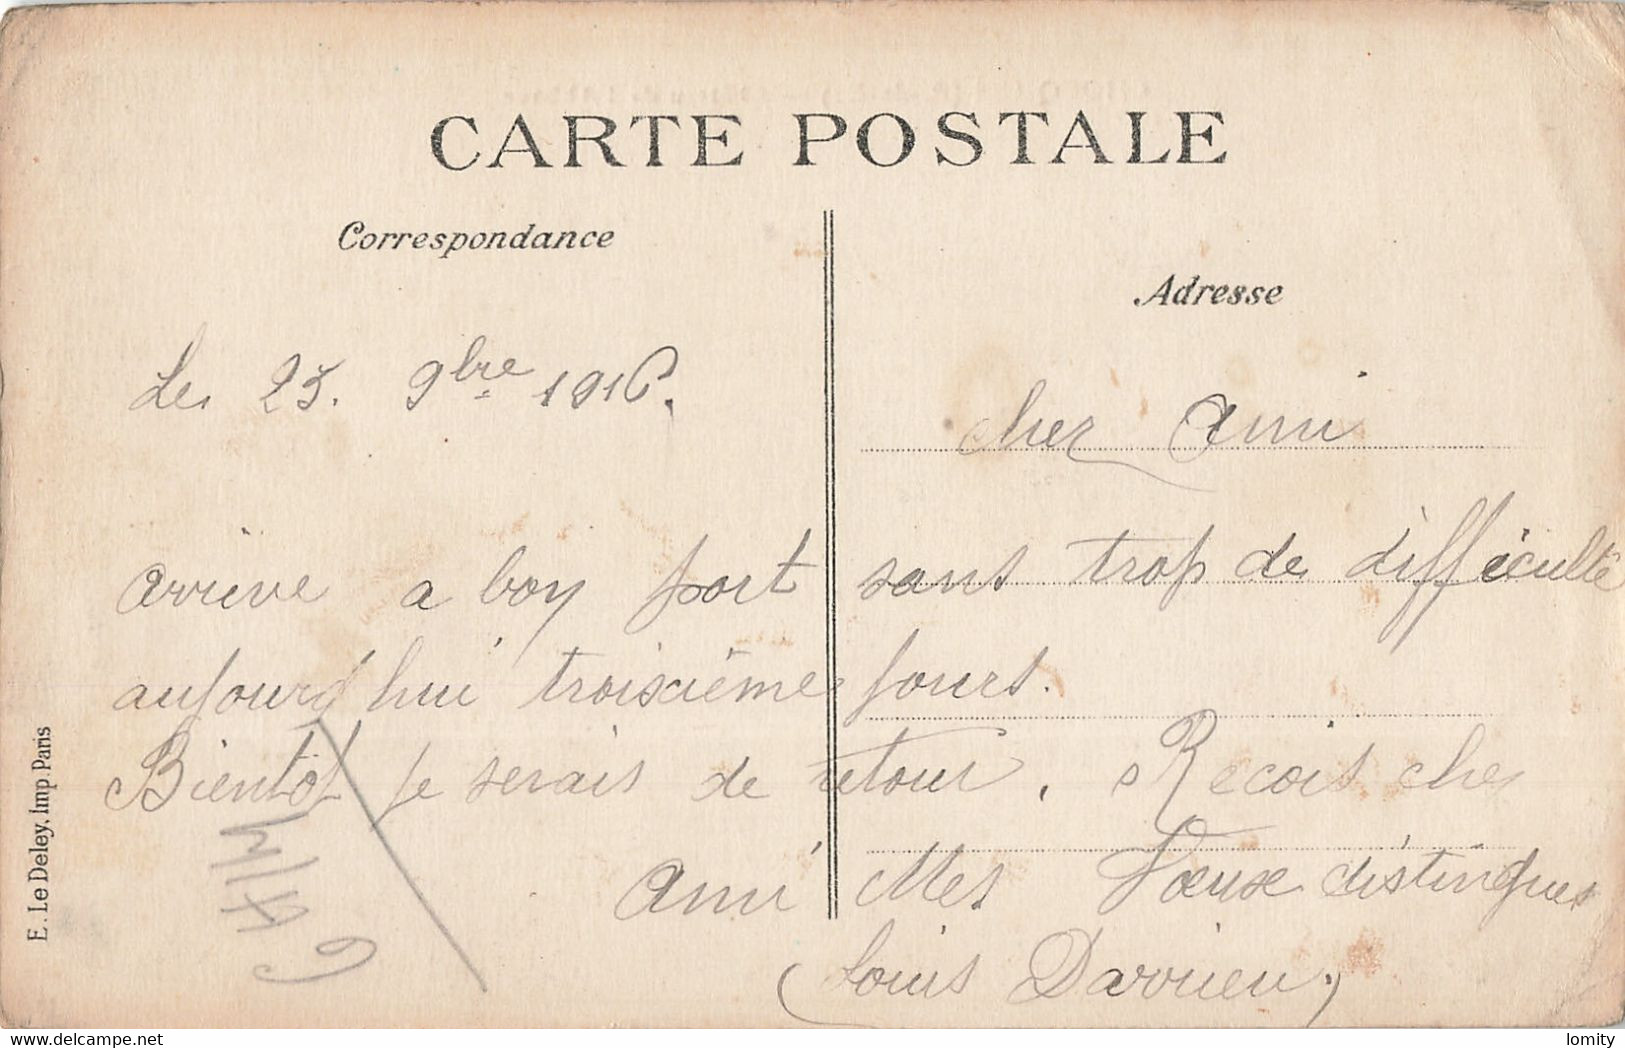 CARTE POSTALE
Correspondance
Adresse
Le 25. 9bre 1916.
cher Ami
arrive a bon port sans trop de difficulté
aujourd'hui troisième jours.
Bientôt je serais de retour. Recois cher
Ami Mes Vœux distingues
(Louis Darrieu.)
E. Le Deley, Imp. Paris
lomity